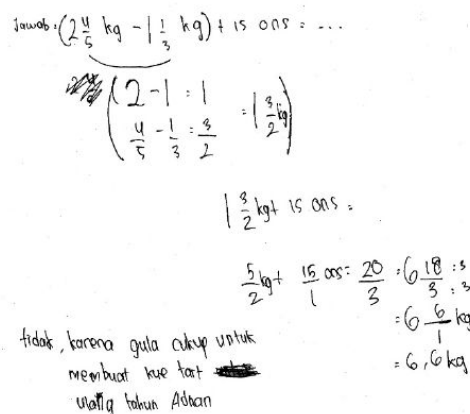 Jawab: (2 4/5 kg - 1 1/3 kg) + 15 ons = ...
(2 - 1 = 1
4/5 - 1/3 = 3/2 = 1 3/2 kg)
1 3/2 kg + 15 ons =
5/2 kg + 15/1 ons = 20/3 = 6 18/3 :3 :3
= 6 6/1 kg
= 6,6 kg
tidak, karena gula cukup untuk
membuat kue tart
ulang tahun Adnan